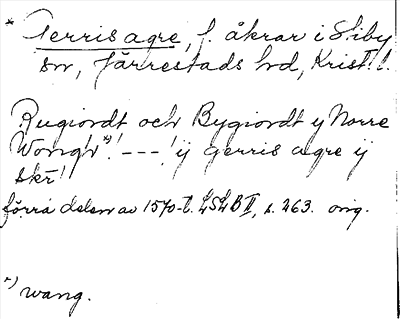 * Gerris agre, f. åkrar i Stiby
sn, Järrestads hd, Krist. l.
Rugiordt och Bygiordt y Norre
Wong!r *)! --- ! ij gerris agre ij
skr!
förra delen av 1570-t. LSLB II, s. 263. orig.
*) wang.